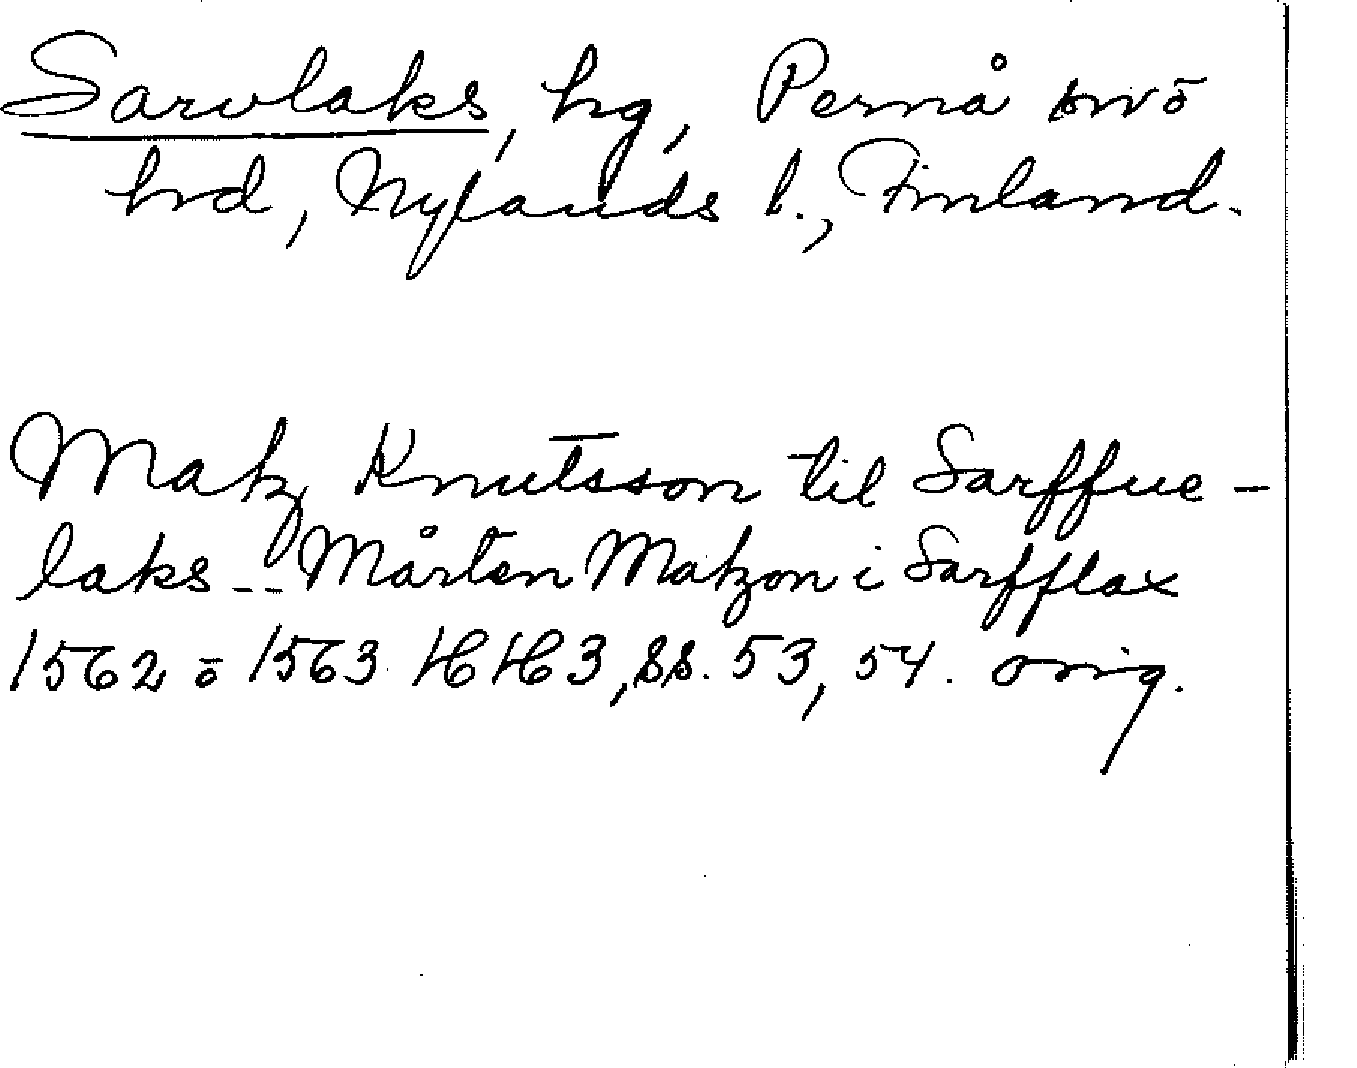 Sarvlaks, hg, Pernå snō
hrd, Nylands l., Finland.
Matz Knutsson til Sarffue-
laks -- Mårten Matzon i Sarfflax
1562 ō 1563 HH3, ss. 53, 54. orig.